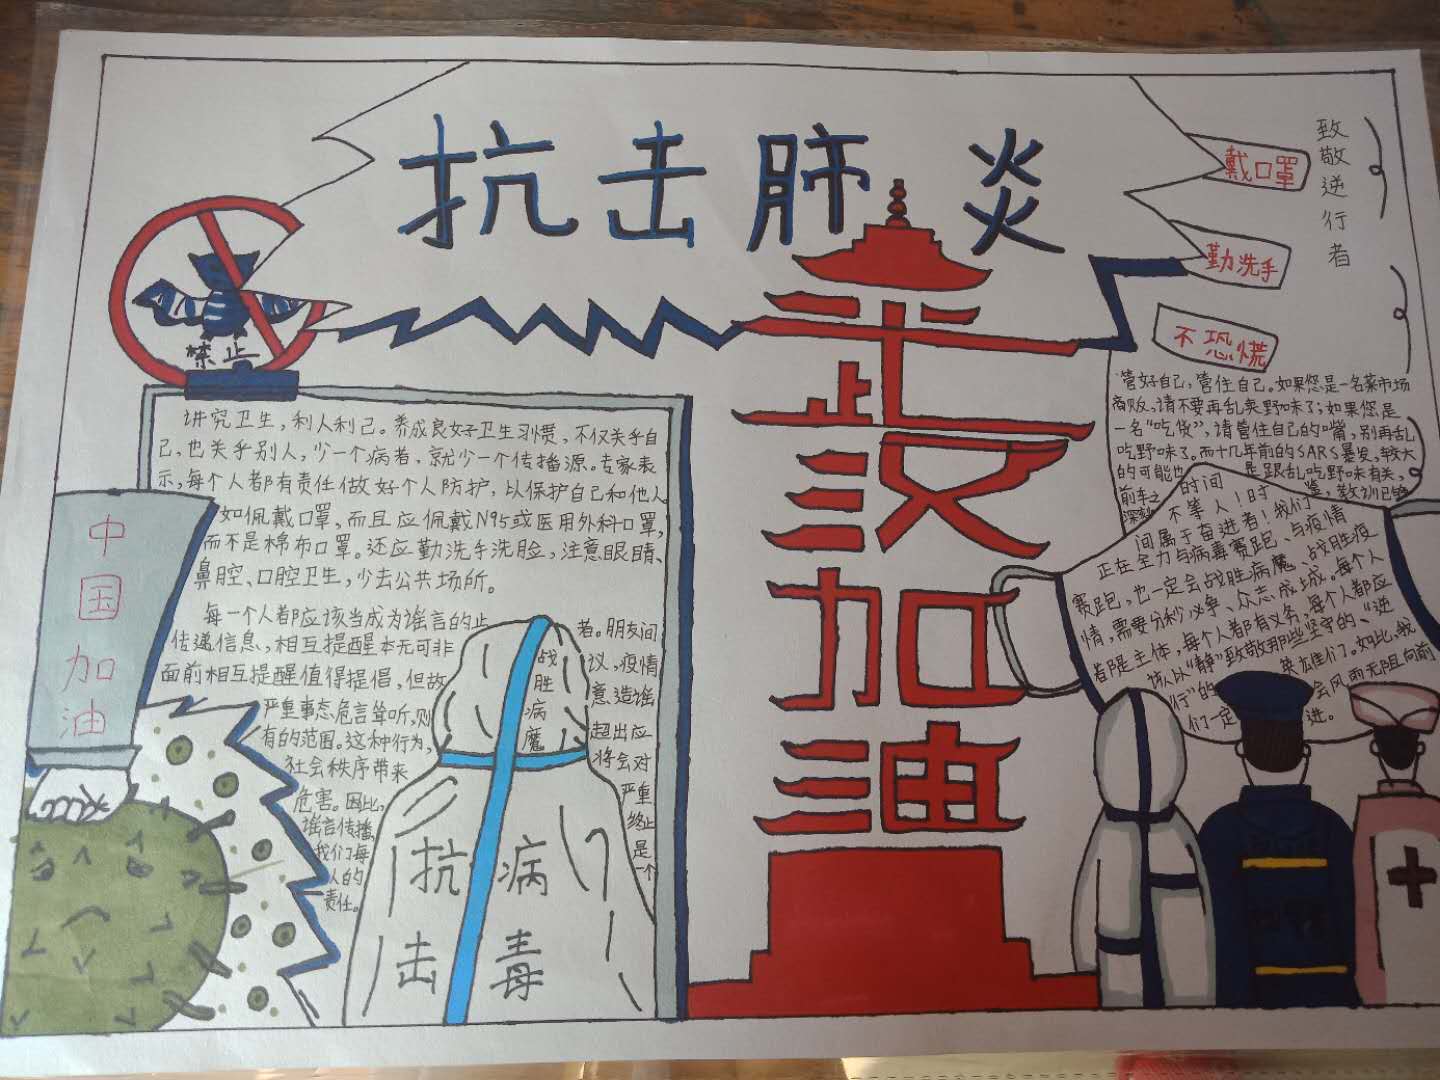 抗击肺炎
禁止
戴口罩
勤洗手
不恐慌
致敬逆行者
讲究卫生，利人利己。养成良好卫生习惯，不仅关乎自
己，也关乎别人，少一个病者，就少一个传播源。专家表
示，每个人都有责任做好个人防护，以保护自己和他人
如佩戴口罩，而且应佩戴N95或医用外科口罩，
而不是棉布口罩。还应勤洗手洗脸，注意眼睛、
鼻腔、口腔卫生，少去公共场所。
每一个人都应该当成为谣言的止 者。朋友间
传递信息、相互提醒本无可非 议，疫情
面前相互提醒值得提倡，但故 意造谣
严重事态危言耸听，则 超出应
有的范围。这种行为， 将会对
社会秩序带来 严重
危害。因此， 终止
谣言传播， 是
我们每 一个
人的
责任。
中国加油
战胜病魔
抗病
击毒
武汉加油
管好自己，管住自己。如果您是一名菜市场
商贩，请不要再乱卖野味了；如果您是
一名“吃货”，请管住自己的嘴，别再乱
吃野味了。而十几年前的SARS暴发，较大
的可能也 是跟乱吃野味有关，
前车之 鉴，教训已够
深刻
时间
不等人！时
间属于奋进者！我们
正在全力与病毒赛跑、与疫情
赛跑，也一定会战胜病魔、战胜疫
情，需要分秒必争、众志成城。每个人
都是主体，每个人都有义务，每个人都应
该以“静”致敬那些坚守的、“逆
行”的 英雄们。如此，我
们一定 会风雨无阻向前
进。